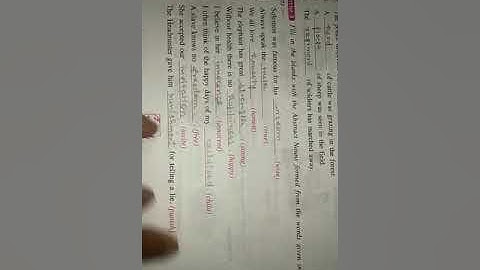 A herd of cattle was grazing in the forest.
A flock of sheep was seen in the field.
The regiment of soldiers has marched away.
Fill in the blanks with the Abstract Nouns formed from the words given in
Solomon was famous for his wisdom (wise)
Always speak the (true)
We all love honesty (honest)
The elephant has great strength (strong)
Without health there is no happiness (happy)
I believe in her innocence (innocent)
I often think of the happy days of my childhood (child)
A slave knows no freedom (free)
She accepted our invitation (invite)
The Headmaster gave him punishment for telling a lie. (punish)